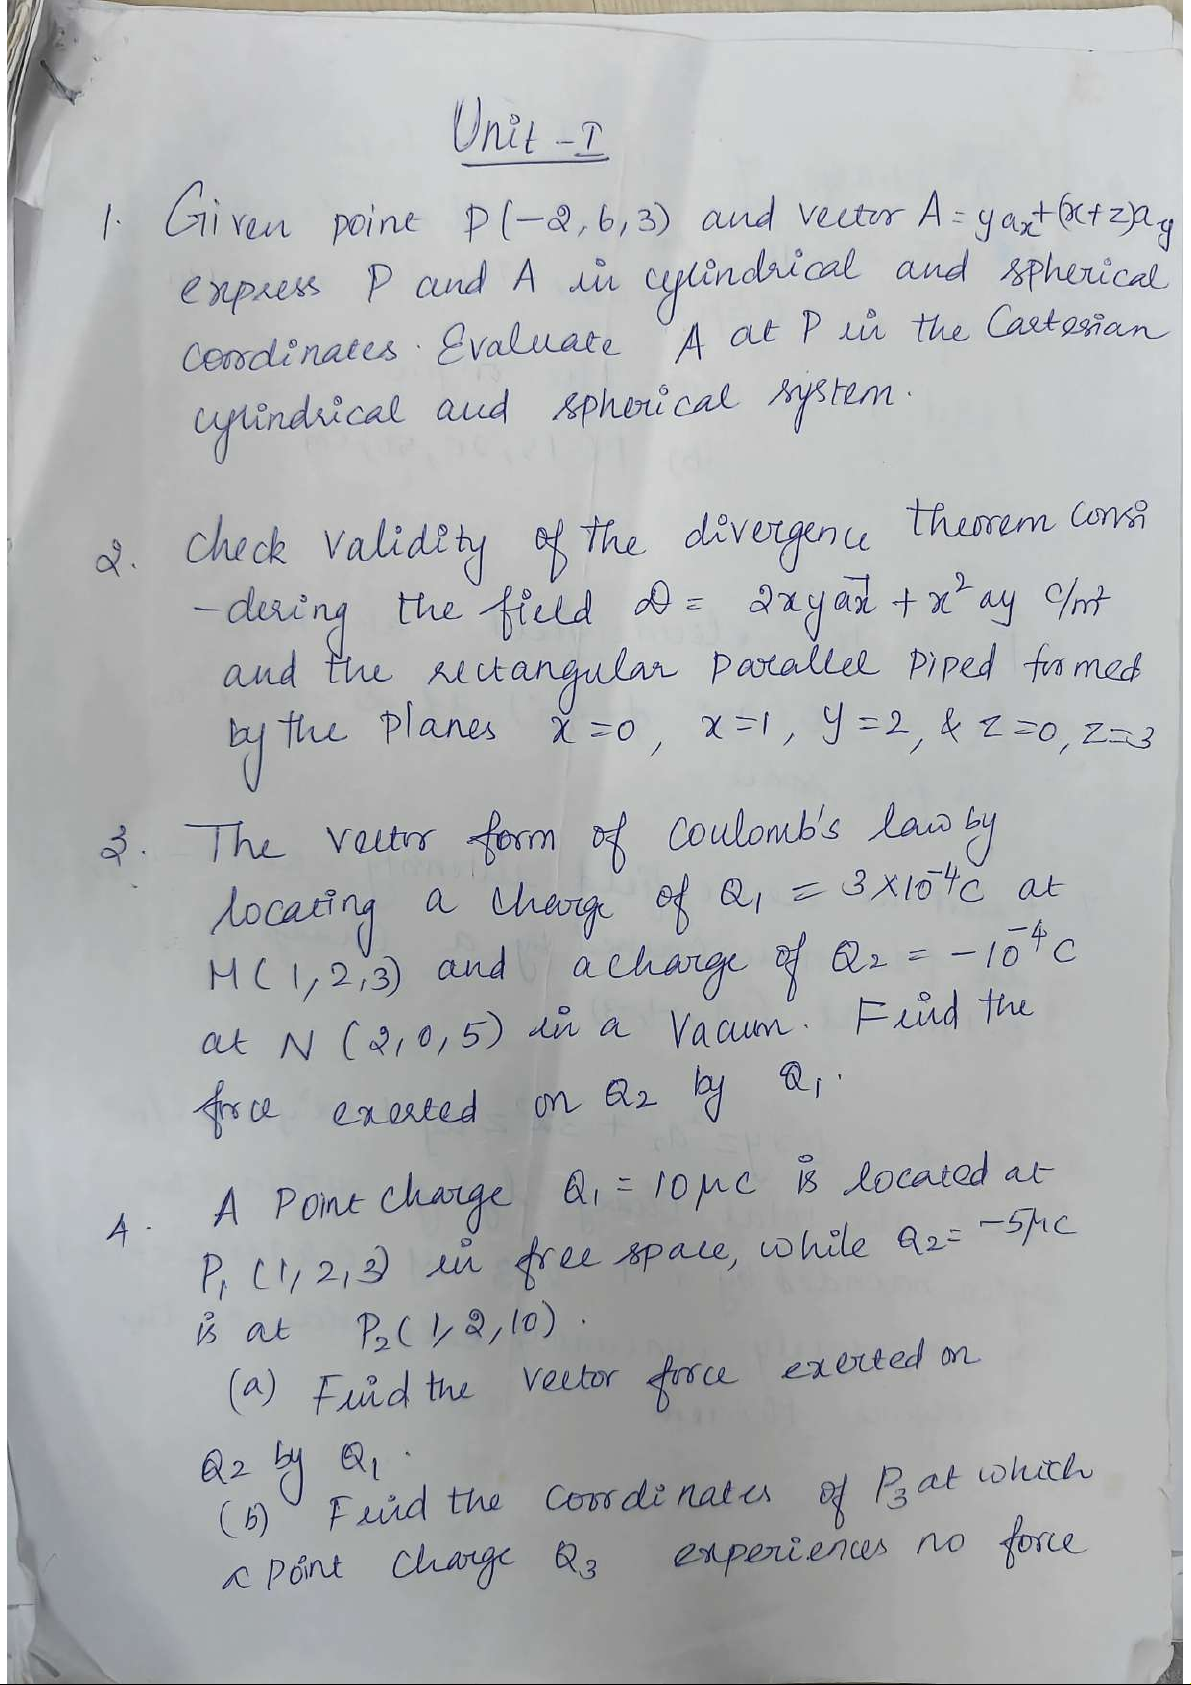 Unit - I
1. Given point P(-2,6,3) and vector A = y ax + (x+z) ay
express P and A in cylindrical and spherical
coordinates. Evaluate A at P in the Cartesian
cylindrical and spherical system.
2. check validity of the divergence theorem consi
-dering the field D = 2xy ax + x² ay c/m²
and the rectangular parallel piped formed
by the planes x=0, x=1, y=2, & z=0, z=3
3. The vector form of coulomb's law by
locating a charge of Q1 = 3×10⁻⁴C at
M(1,2,3) and a charge of Q2 = -10⁻⁴C
at N (2,0,5) in a vacum. Find the
force exerted on Q2 by Q1.
4. A Point charge Q1 = 10 μC is located at
P1 (1,2,3) in free space, while Q2 = -5μC
is at P2(1,2,10).
(a) Find the vector force exerted on
Q2 by Q1.
(b) Find the coordinates of P3 at which
a point charge Q3 experiences no force